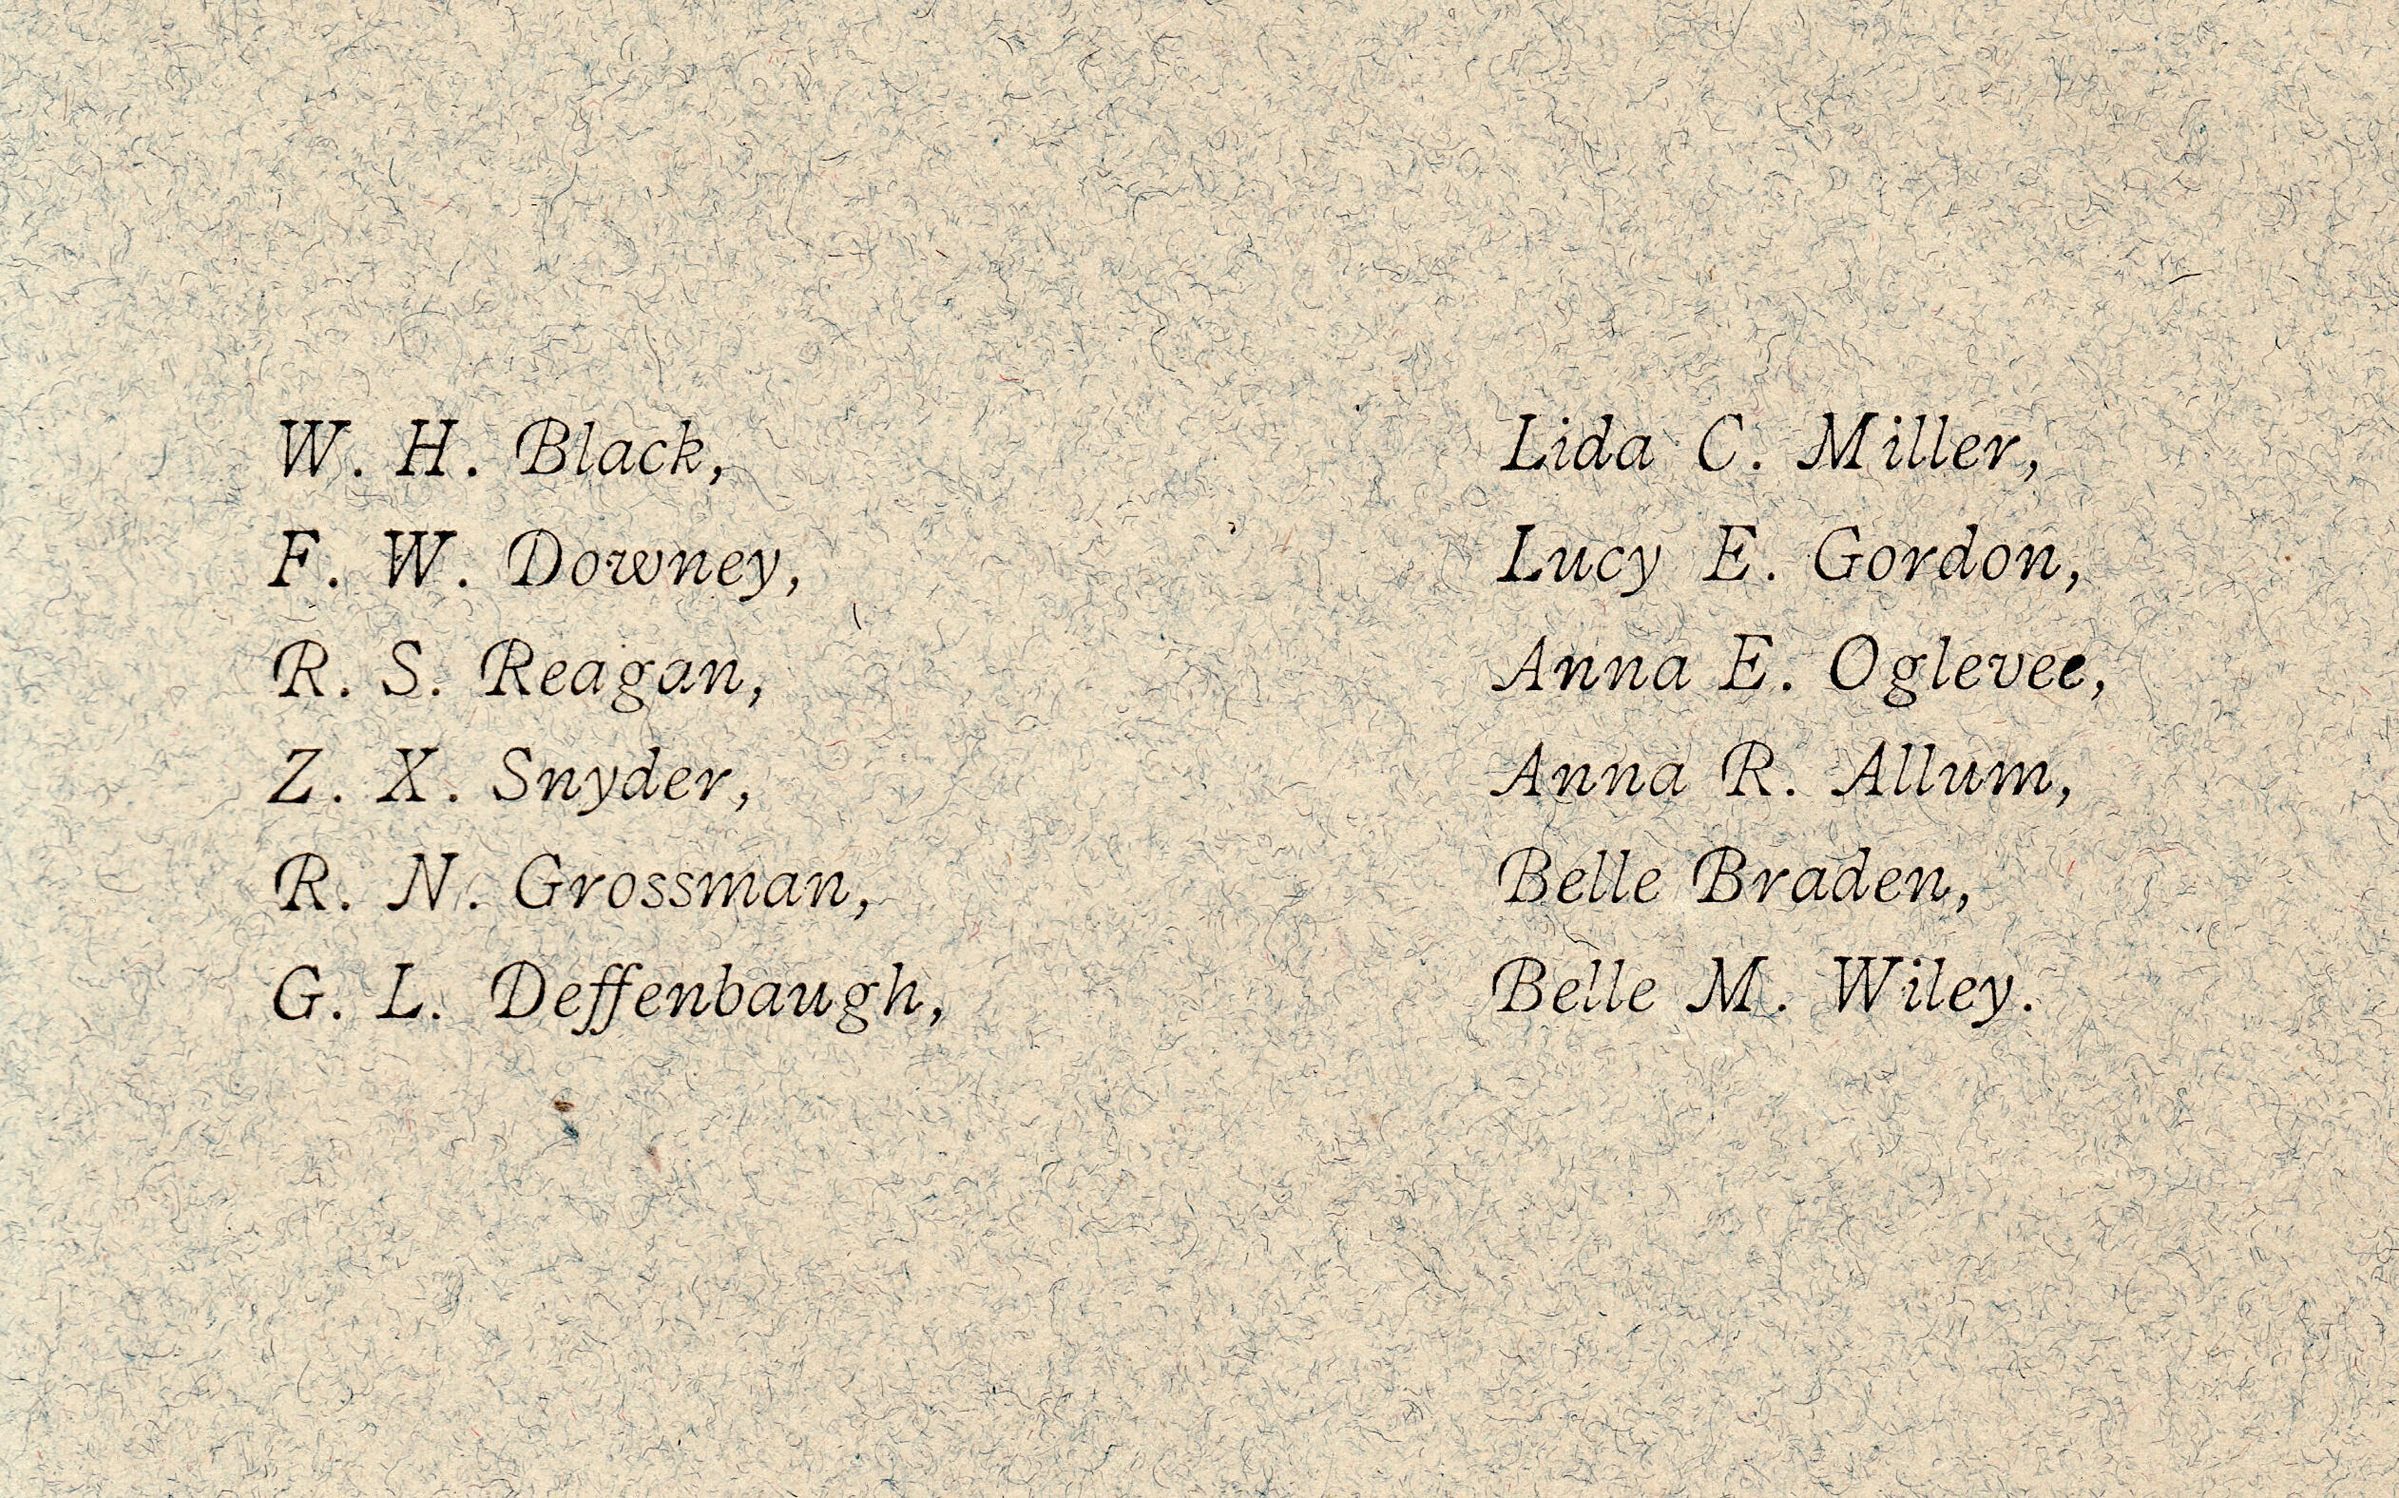 W. H. Black,
F. W. Downey,
R. S. Reagan,
Z. X. Snyder,
R. N. Grossman,
G. L. Deffenbaugh,
Lida C. Miller,
Lucy E. Gordon,
Anna E. Oglevee,
Anna R. Allum,
Belle Braden,
Belle M. Wiley.